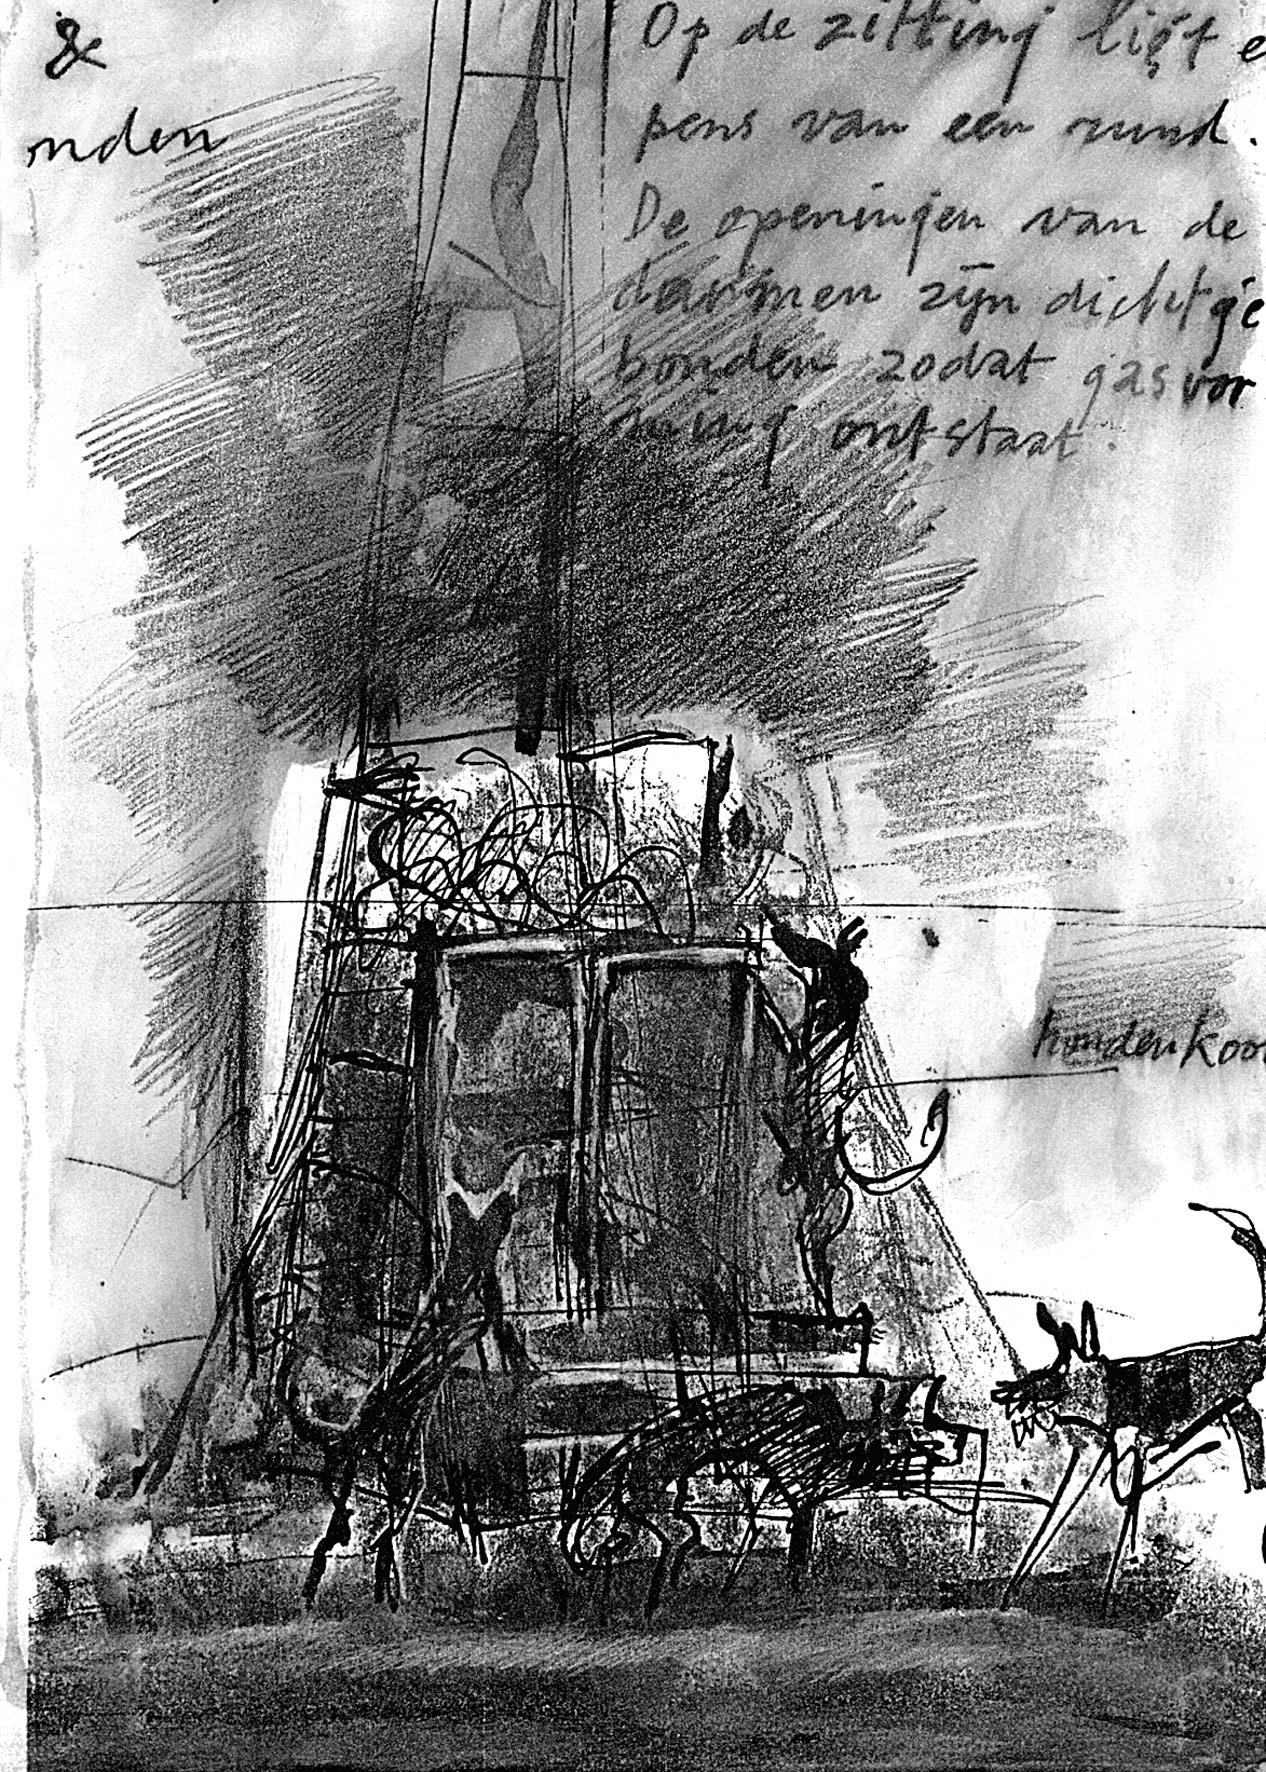 &
nden
Op de zitting ligt e
pens van een rund.
De openingen van de
darmen zijn dichtge
bonden zodat gasvor
ming ontstaat.
hondenkooi